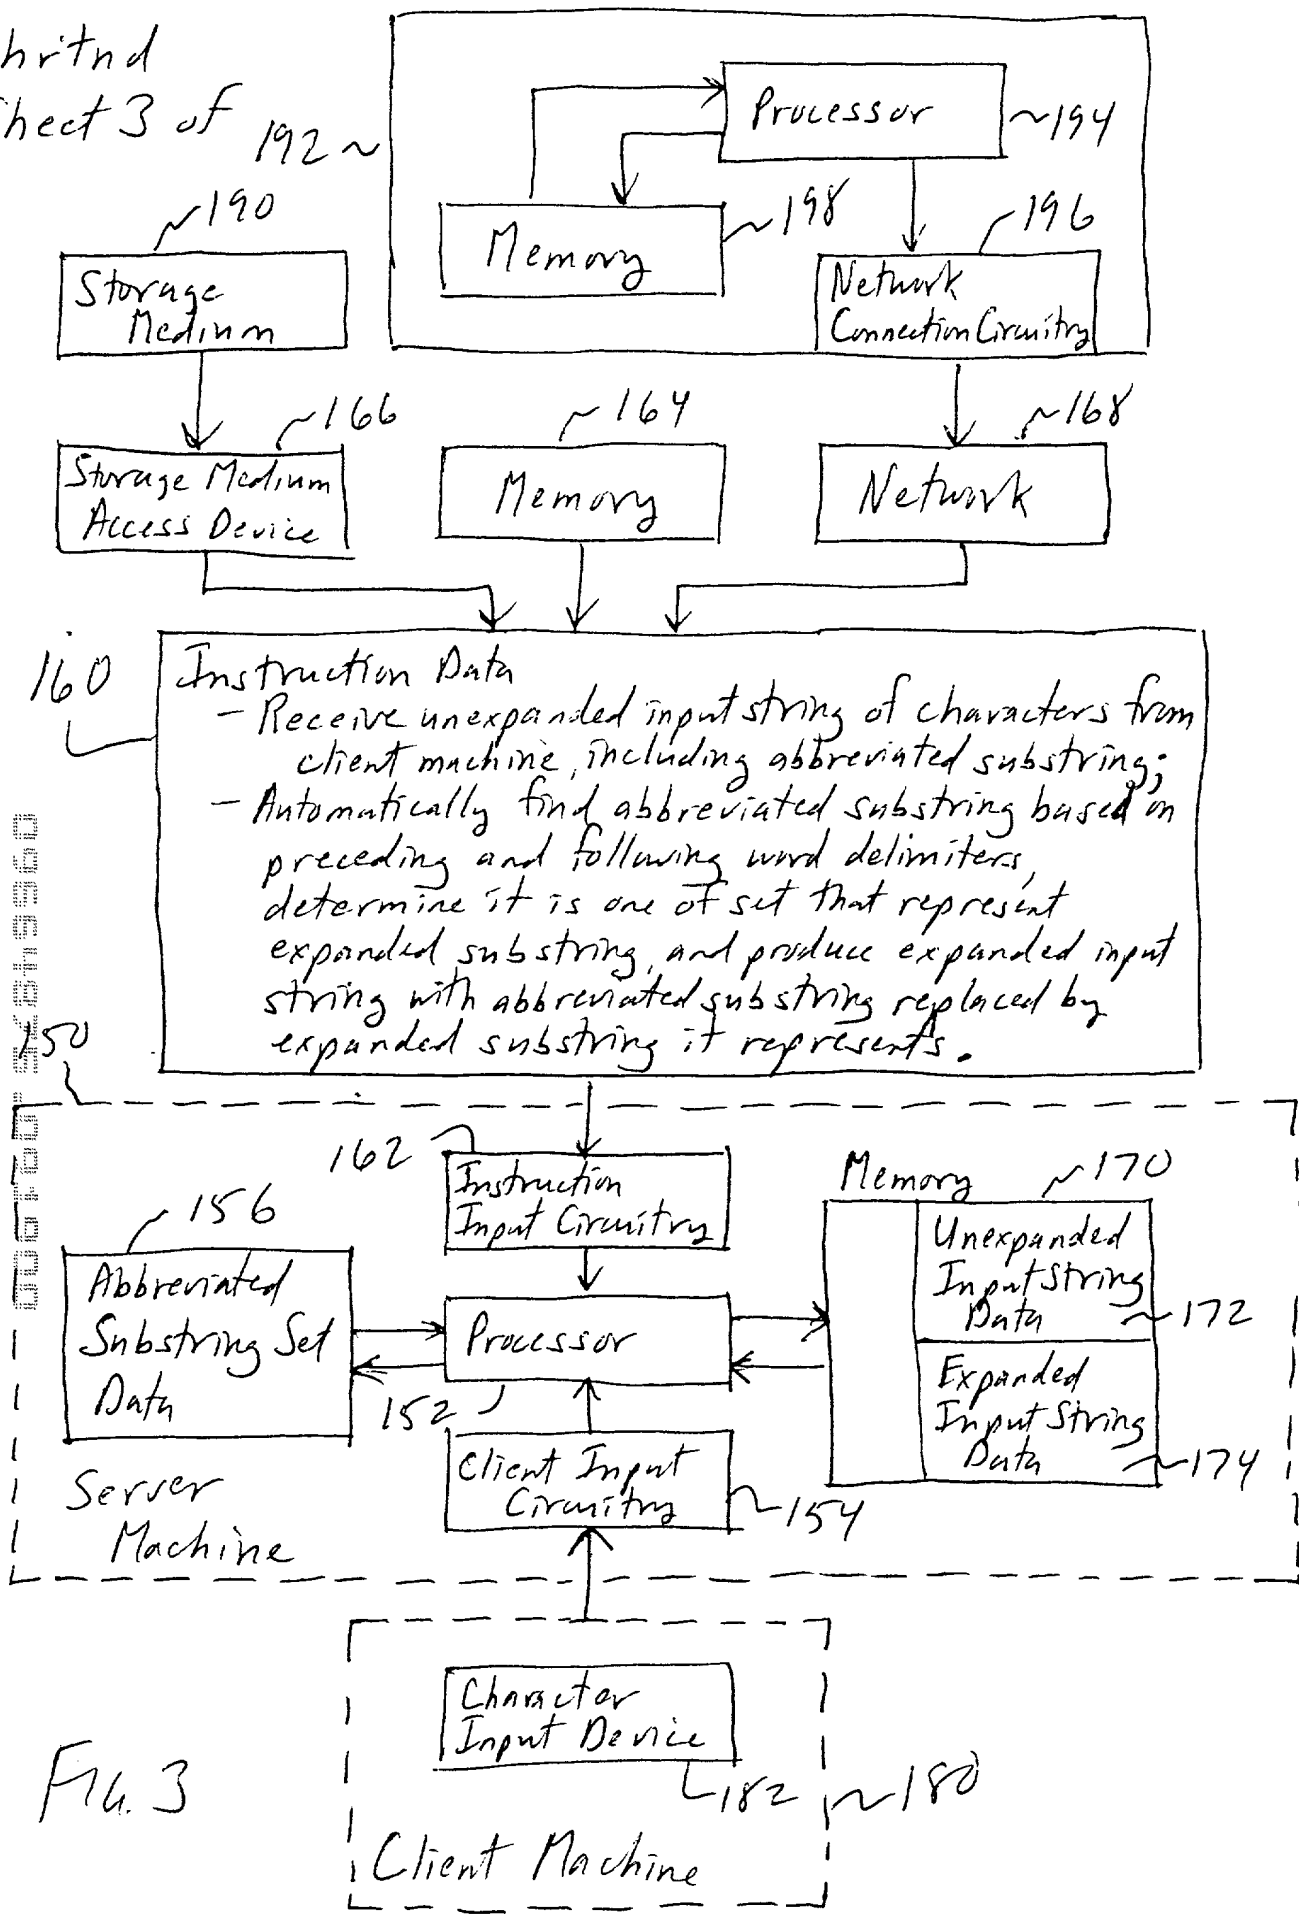 Sheet 3 of
192
Processor
194
190
Memory
198
196
Storage
Medium
Network
Connection Circuitry
166
164
168
Storage Medium
Access Device
Memory
Network
160
Instruction Data
- Receive unexpanded input string of characters from
client machine, including abbreviated substring;
- Automatically find abbreviated substring based on
preceding and following word delimiters,
determine it is one of set that represent
expanded substring, and produce expanded input
string with abbreviated substring replaced by
expanded substring it represents.
150
162
Instruction
Input Circuitry
Memory
170
156
Abbreviated
Substring Set
Data
Processor
152
Unexpanded
Input String
Data
172
Expanded
Input String
Data
174
Client Input
Circuitry
154
Server
Machine
Character
Input Device
182
180
FIG. 3
Client Machine